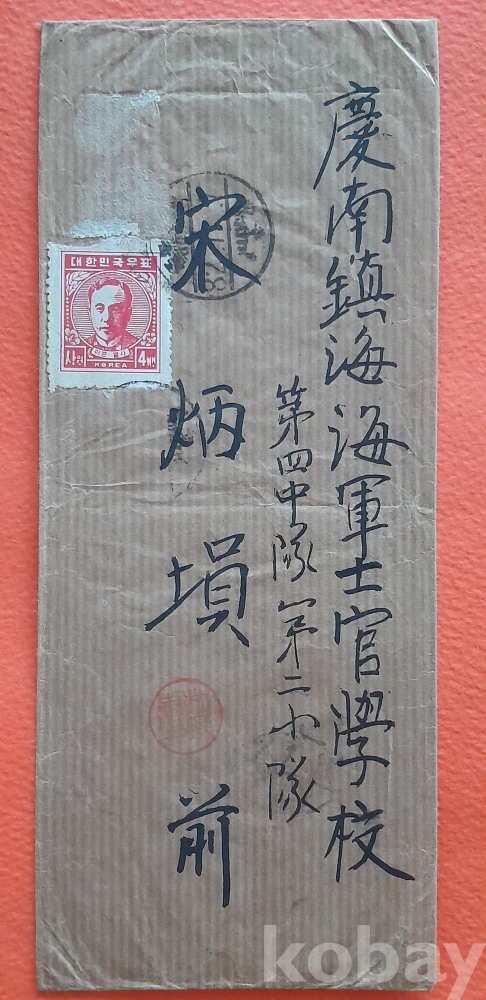 慶南鎮海海軍士官學校
第四中隊第二小隊
宋炳塤前
대한민국우표
사원
4WN
KOREA
kobay